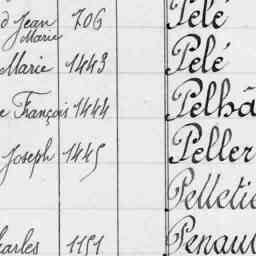 d Jean 706 Pelé
Marie
Marie 1443 Pelé
e François 1444 Pelhâ
Joseph 1445 Peller
Pelletie
harles 1151 Penau